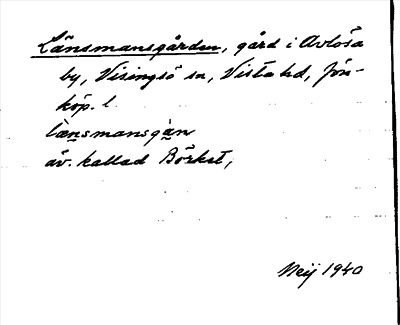 Länsmansgården, gård i Avlösa
by, Visingsö sn, Vista hd, Jön-
köp. l
länsmansgàn
äv. kallad Börket,
Meij 1940